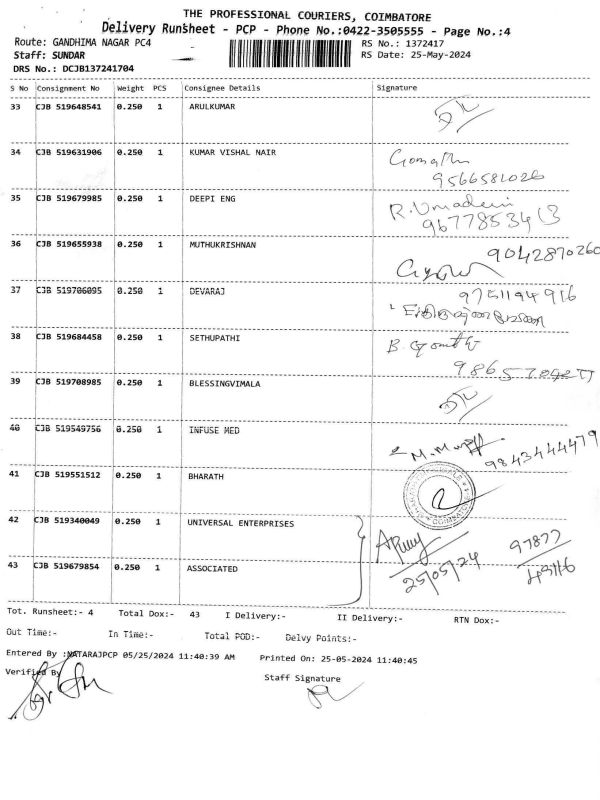 THE PROFESSIONAL COURIERS, COIMBATORE
Delivery Runsheet - PCP - Phone No.:0422-3505555 - Page No.:4
Route: GANDHIMA NAGAR PC4
RS No.: 1372417
Staff: SUNDAR
RS Date: 25-May-2024
DRS No.: DCJB137241704
S No Consignment No Weight PCS Consignee Details Signature
33 CJB 519648541 0.250 1 ARULKUMAR
34 CJB 519631906 0.250 1 KUMAR VISHAL NAIR Gomathi
9566581026
35 CJB 519679985 0.250 1 DEEPI ENG R. Umadevi
9677853413
36 CJB 519655938 0.250 1 MUTHUKRISHNAN 9042870260
37 CJB 519706095 0.250 1 DEVARAJ 9751194916
38 CJB 519684458 0.250 1 SETHUPATHI B.
39 CJB 519708985 0.250 1 BLESSINGVIMALA
40 CJB 519549756 0.250 1 INFUSE MED 9843444479
41 CJB 519551512 0.250 1 BHARATH
42 CJB 519340049 0.250 1 UNIVERSAL ENTERPRISES 97877
43 CJB 519679854 0.250 1 ASSOCIATED 25/05/24 43116
Tot. Runsheet:- 4 Total Dox:- 43 I Delivery:- II Delivery:- RTN Dox:-
Out Time:- In Time:- Total POD:- Delvy Points:-
Entered By :NATARAJPCP 05/25/2024 11:40:39 AM Printed On: 25-05-2024 11:40:45
Verified By
Staff Signature